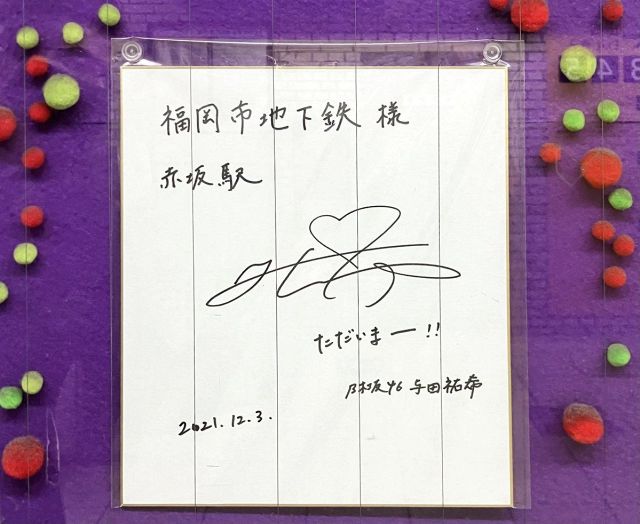 福岡市地下鉄 様
赤坂駅
ただいまー!!
乃木坂46 与田祐希
2021.12.3.